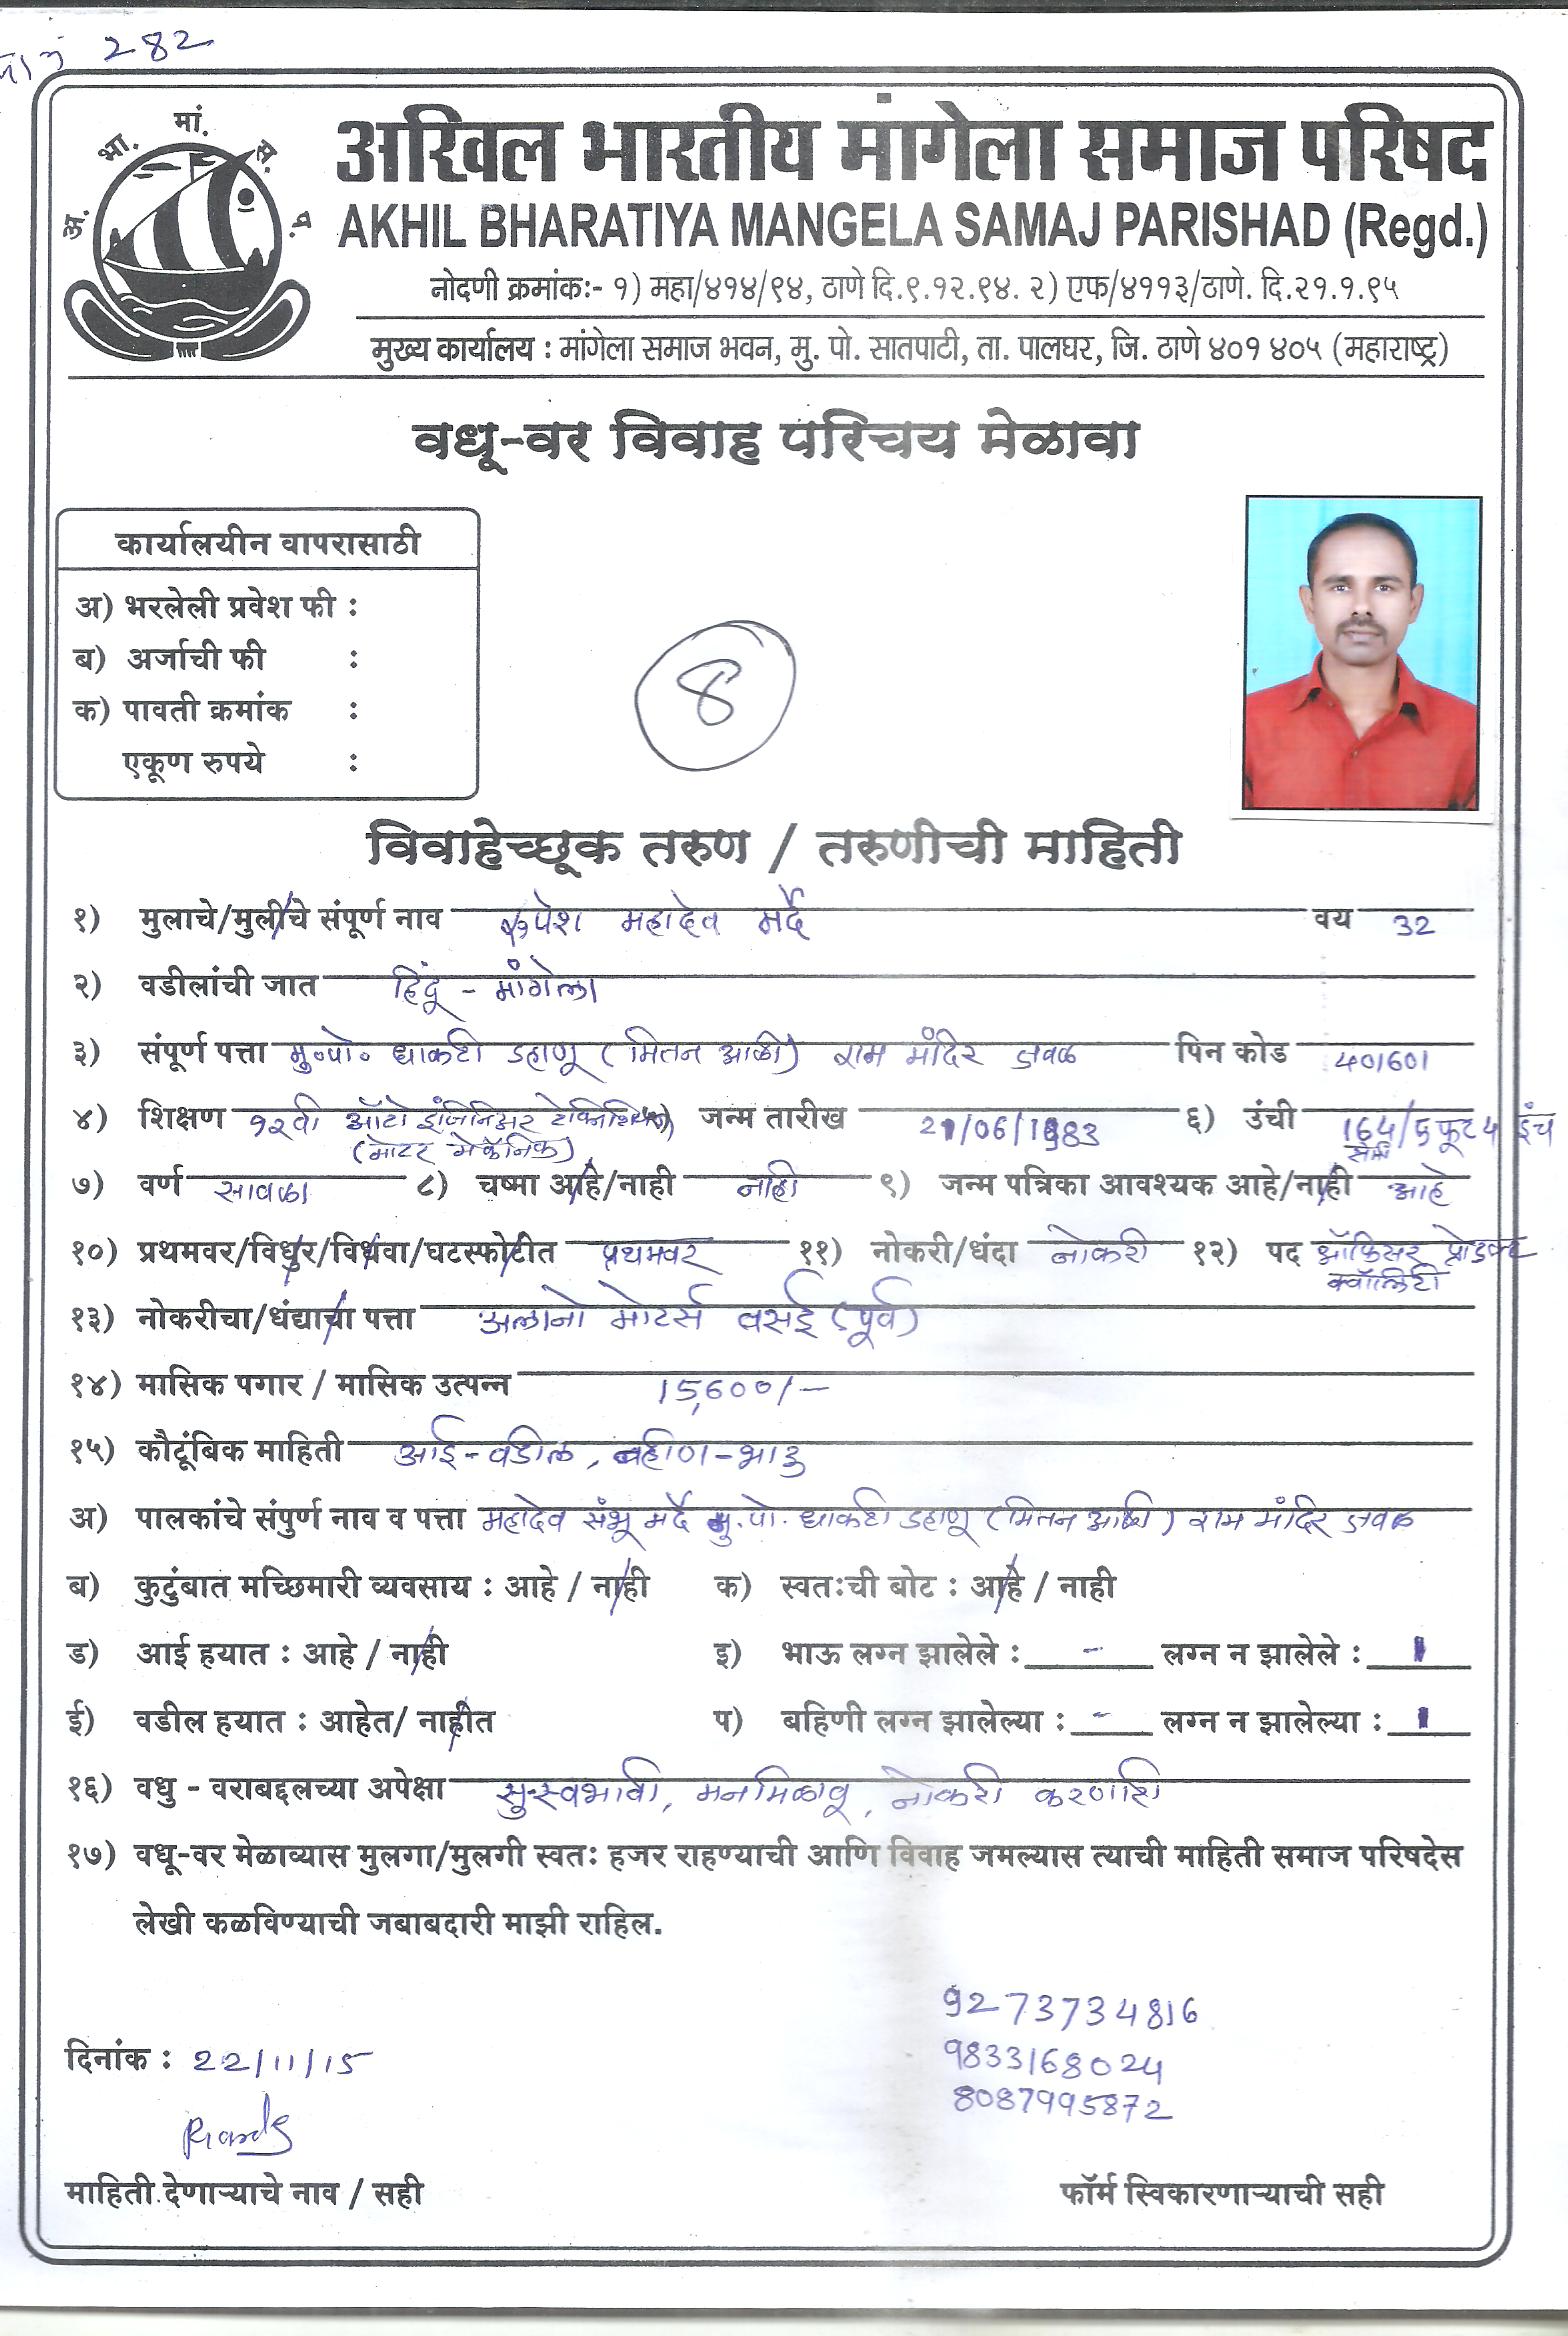 282
अ. भा. मां. स. प.
अखिल भारतीय मांगेला समाज परिषद
AKHIL BHARATIYA MANGELA SAMAJ PARISHAD (Regd.)
नोदणी क्रमांकः- १) महा/४१४/९४, ठाणे दि.९.१२.९४. २) एफ/४११३/ठाणे. दि.२१.१.९५
मुख्य कार्यालय : मांगेला समाज भवन, मु. पो. सातपाटी, ता. पालघर, जि. ठाणे ४०१ ४०५ (महाराष्ट्र)
वधू-वर विवाह परिचय मेळावा
कार्यालयीन वापरासाठी
अ) भरलेली प्रवेश फी :
ब) अर्जाची फी :
क) पावती क्रमांक :
एकूण रुपये :
8
विवाहेच्छूक तरुण / तरुणीची माहिती
१) मुलाचे/मुलीचे संपूर्ण नाव रुपेश महादेव मर्दे वय 32
२) वडीलांची जात हिंदू - मांगेला
३) संपूर्ण पत्ता मु०पो० धाकटी डहाणू (मितन आळी) राम मंदिर जवळ पिन कोड 401601
४) शिक्षण १२वी ऑटो इंजिनिअर टेक्निशियन ५) जन्म तारीख 21/06/1983 ६) उंची 164/5 फूट 4 इंच
(मोटर मेकॅनिक) सेमी
७) वर्ण सावळा ८) चष्मा आहे/नाही नाही ९) जन्म पत्रिका आवश्यक आहे/नाही आहे
१०) प्रथमवर/विधुर/विधवा/घटस्फोटीत प्रथमवर ११) नोकरी/धंदा नोकरी १२) पद ऑफिसर प्रोडक्ट
क्वॉलिटी
१३) नोकरीचा/धंद्याचा पत्ता अलानो मोटर्स वसई (पूर्व)
१४) मासिक पगार / मासिक उत्पन्न 15,600/-
१५) कौटूंबिक माहिती आई-वडील, बहीण-भाऊ
अ) पालकांचे संपुर्ण नाव व पत्ता महादेव संभू मर्दे मु.पो. धाकटी डहाणू (मितन आळी) राम मंदिर जवळ
ब) कुटुंबात मच्छिमारी व्यवसाय : आहे / नाही क) स्वतःची बोट : आहे / नाही
ड) आई हयात : आहे / नाही इ) भाऊ लग्न झालेले : - लग्न न झालेले : 1
ई) वडील हयात : आहेत/ नाहीत प) बहिणी लग्न झालेल्या : - लग्न न झालेल्या : 1
१६) वधु - वराबद्दलच्या अपेक्षा सु-स्वभावी, मनमिळावू, नोकरी करणारी
१७) वधू-वर मेळाव्यास मुलगा/मुलगी स्वतः हजर राहण्याची आणि विवाह जमल्यास त्याची माहिती समाज परिषदेस
लेखी कळविण्याची जबाबदारी माझी राहिल.
9273734816
9833168024
8087995872
दिनांक : 22/11/15
माहिती देणाऱ्याचे नाव / सही फॉर्म स्विकारणाऱ्याची सही